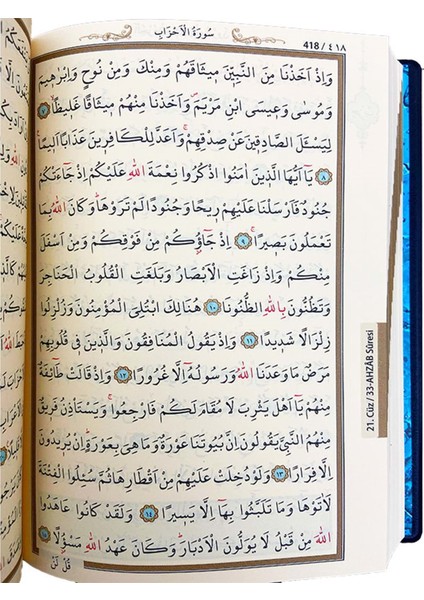 سُورَةُ الْاَحْزَابِ
418 / ٤١٨
وَاِذْ اَخَذْنَا مِنَ النَّبِيّٖنَ مٖيثَاقَهُمْ وَمِنْكَ وَمِنْ نُوحٍ وَاِبْرٰهٖيمَ
وَمُوسٰى وَعٖيسَى ابْنِ مَرْيَمَ وَاَخَذْنَا مِنْهُمْ مٖيثَاقًا غَلٖيظًا ﴿٧﴾
لِيَسْـَٔلَ الصَّادِقٖينَ عَنْ صِدْقِهِمْ وَاَعَدَّ لِلْكَافِرٖينَ عَذَابًا اَلٖيمًا
﴿٨﴾ يَٓا اَيُّهَا الَّذٖينَ اٰمَنُوا اذْكُرُوا نِعْمَةَ اللّٰهِ عَلَيْكُمْ اِذْ جَٓاءَتْكُمْ
جُنُودٌ فَاَرْسَلْنَا عَلَيْهِمْ رٖيحًا وَجُنُودًا لَمْ تَرَوْهَا وَكَانَ اللّٰهُ بِمَا
تَعْمَلُونَ بَصٖيرًا ﴿٩﴾ اِذْ جَٓاؤُ۫كُمْ مِنْ فَوْقِكُمْ وَمِنْ اَسْفَلَ
مِنْكُمْ وَاِذْ زَاغَتِ الْاَبْصَارُ وَبَلَغَتِ الْقُلُوبُ الْحَنَاجِرَ
وَتَظُنُّونَ بِاللّٰهِ الظُّنُونَا ﴿١٠﴾ هُنَالِكَ ابْتُلِيَ الْمُؤْمِنُونَ وَزُلْزِلُوا
زِلْزَالًا شَدٖيدًا ﴿١١﴾ وَاِذْ يَقُولُ الْمُنَافِقُونَ وَالَّذٖينَ فٖي قُلُوبِهِمْ
مَرَضٌ مَا وَعَدَنَا اللّٰهُ وَرَسُولُهُٓ اِلَّا غُرُورًا ﴿١٢﴾ وَاِذْ قَالَتْ طَٓائِفَةٌ
مِنْهُمْ يَٓا اَهْلَ يَثْرِبَ لَا مُقَامَ لَكُمْ فَارْجِعُوا وَيَسْتَأْذِنُ فَرٖيقٌ
مِنْهُمُ النَّبِيَّ يَقُولُونَ اِنَّ بُيُوتَنَا عَوْرَةٌ وَمَا هِيَ بِعَوْرَةٍ اِنْ يُرٖيدُونَ
اِلَّا فِرَارًا ﴿١٣﴾ وَلَوْ دُخِلَتْ عَلَيْهِمْ مِنْ اَقْطَارِهَا ثُمَّ سُئِلُوا الْفِتْنَةَ
لَاٰتَوْهَا وَمَا تَلَبَّثُوا بِهَٓا اِلَّا يَسٖيرًا ﴿١٤﴾ وَلَقَدْ كَانُوا عَاهَدُوا
اللّٰهَ مِنْ قَبْلُ لَا يُوَلُّونَ الْاَدْبَارَ وَكَانَ عَهْدُ اللّٰهِ مَسْؤُ۫لًا ﴿١٥﴾
قُلْ لَنْ
21. Cüz / 33-AHZÂB Sûresi